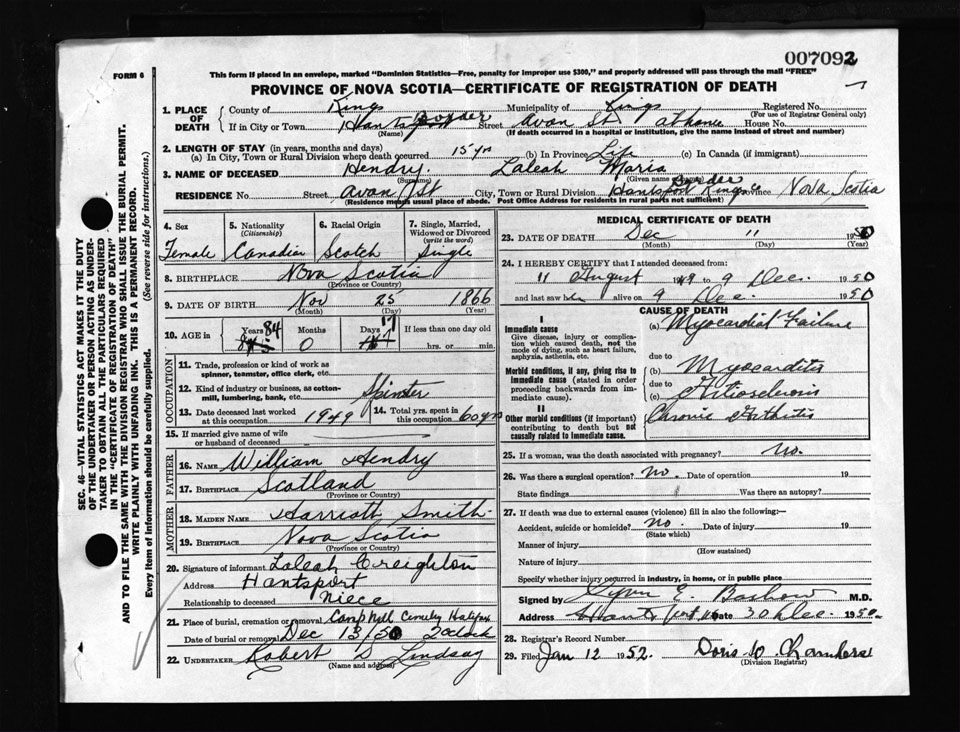 007092
FORM 6
This form if placed in an envelope, marked "Dominion Statistics—Free, penalty for improper use $300," and properly addressed will pass through the mail "FREE"
PROVINCE OF NOVA SCOTIA—CERTIFICATE OF REGISTRATION OF DEATH
SEC. 46—VITAL STATISTICS ACT MAKES IT THE DUTY
OF THE UNDERTAKER OR PERSON ACTING AS UNDER-
TAKER TO OBTAIN ALL THE PARTICULARS REQUIRED
IN THE "CERTIFICATE OF REGISTRATION OF DEATH"
AND TO FILE THE SAME WITH THE DIVISION REGISTRAR WHO SHALL ISSUE THE BURIAL PERMIT.
WRITE PLAINLY WITH UNFADING INK. THIS IS A PERMANENT RECORD.
Every item of information should be carefully supplied. (See reverse side for instructions.)
1. PLACE OF DEATH County of Kings Municipality of Kings Registered No.
(For use of Registrar General only)
If in City or Town Hantsport Border Street Avon St at home House No.
(Name) (If death occurred in a hospital or institution, give the name instead of street and number)
2. LENGTH OF STAY (in years, months and days)
(a) In City, Town or Rural Division where death occurred 15 yrs (b) In Province Life (c) In Canada (if immigrant)
3. NAME OF DECEASED Hendry Laleah Maria
(Surname) (Given name)
RESIDENCE No. Street Avon St City, Town or Rural Division Hantsport Border Kings Co Province Nova Scotia
(Residence means usual place of abode. Post Office Address for residents in rural parts not sufficient)
4. Sex 5. Nationality (Citizenship) 6. Racial Origin 7. Single, Married, Widowed or Divorced (write the word)
Female Canadian Scotch Single
8. BIRTHPLACE Nova Scotia
(Province or Country)
9. DATE OF BIRTH Nov 25 1866
(Month) (Day) (Year)
10. AGE in Years 84 Months 0 Days 17 If less than one day old
hrs. or min.
OCCUPATION
11. Trade, profession or kind of work as
spinner, teamster, office clerk, etc.
12. Kind of industry or business, as cotton-
mill, lumbering, bank, etc. Spinster
13. Date deceased last worked at this occupation 1949 14. Total yrs. spent in this occupation 60 yrs
15. If married give name of wife
or husband of deceased
FATHER
16. NAME William Hendry
17. BIRTHPLACE Scotland
(Province or Country)
MOTHER
18. MAIDEN NAME Harriott Smith
19. BIRTHPLACE Nova Scotia
(Province or Country)
20. Signature of informant Laleah Creighton
Address Hantsport
Relationship to deceased Niece
21. Place of burial, cremation or removal Camp Hill Cemetery Halifax
Date of burial or removal Dec 13/50 2 oclock
22. UNDERTAKER Robert D Lindsay
(Name and address)
MEDICAL CERTIFICATE OF DEATH
23. DATE OF DEATH Dec 11 1950
(Month) (Day) (Year)
24. I HEREBY CERTIFY that I attended deceased from:
11 August 1949 to 9 Dec. 1950
and last saw her alive on 9 Dec. 1950
CAUSE OF DEATH
I
Immediate cause
Give disease, injury or complica-
tion which caused death, not the
mode of dying, such as heart failure,
asphyxia, asthenia, etc.
(a) Myocardial Failure
due to
Morbid conditions, if any, giving rise to
immediate cause (stated in order
proceeding backwards from im-
mediate cause).
(b) Myocarditis
due to
(c) Arteriosclerosis
II
Other morbid conditions (if important)
contributing to death but not
causally related to immediate cause.
Chronic Arthritis
25. If a woman, was the death associated with pregnancy? no.
26. Was there a surgical operation? no. Date of operation 19
State findings Was there an autopsy?
27. If death was due to external causes (violence) fill in also the following:—
Accident, suicide or homicide? no. Date of injury 19
(State which)
Manner of injury
(How sustained)
Nature of injury
Specify whether injury occurred in industry, in home, or in public place
Signed by E. M.D.
Address Hantsport NS Date 30 Dec. 1950
28. Registrar's Record Number
29. Filed Jan 12 1952. Doris W Chambers
(Division Registrar)